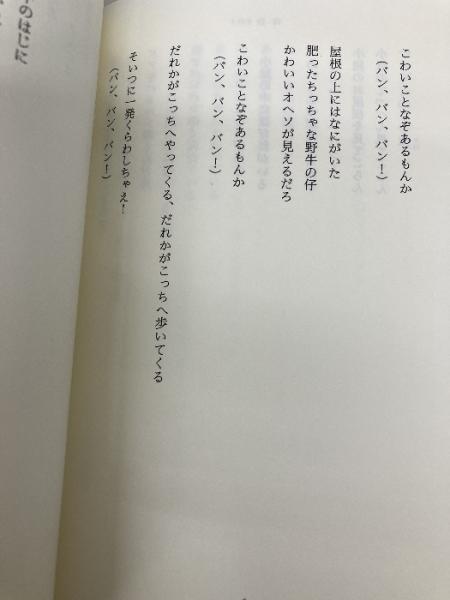 こわいことなぞあるもんか
(バン、バン、バン!)
屋根の上にはなにがいた
肥ったちっちゃな野牛の仔
かわいいオヘソが見えるだろ
こわいことなぞあるもんか
(バン、バン、バン!)
だれかがこっちへやってくる、だれかがこっちへ歩いてくる
そいつに一発くらわしちゃえ!
(バン、バン、バン!)
のはじに